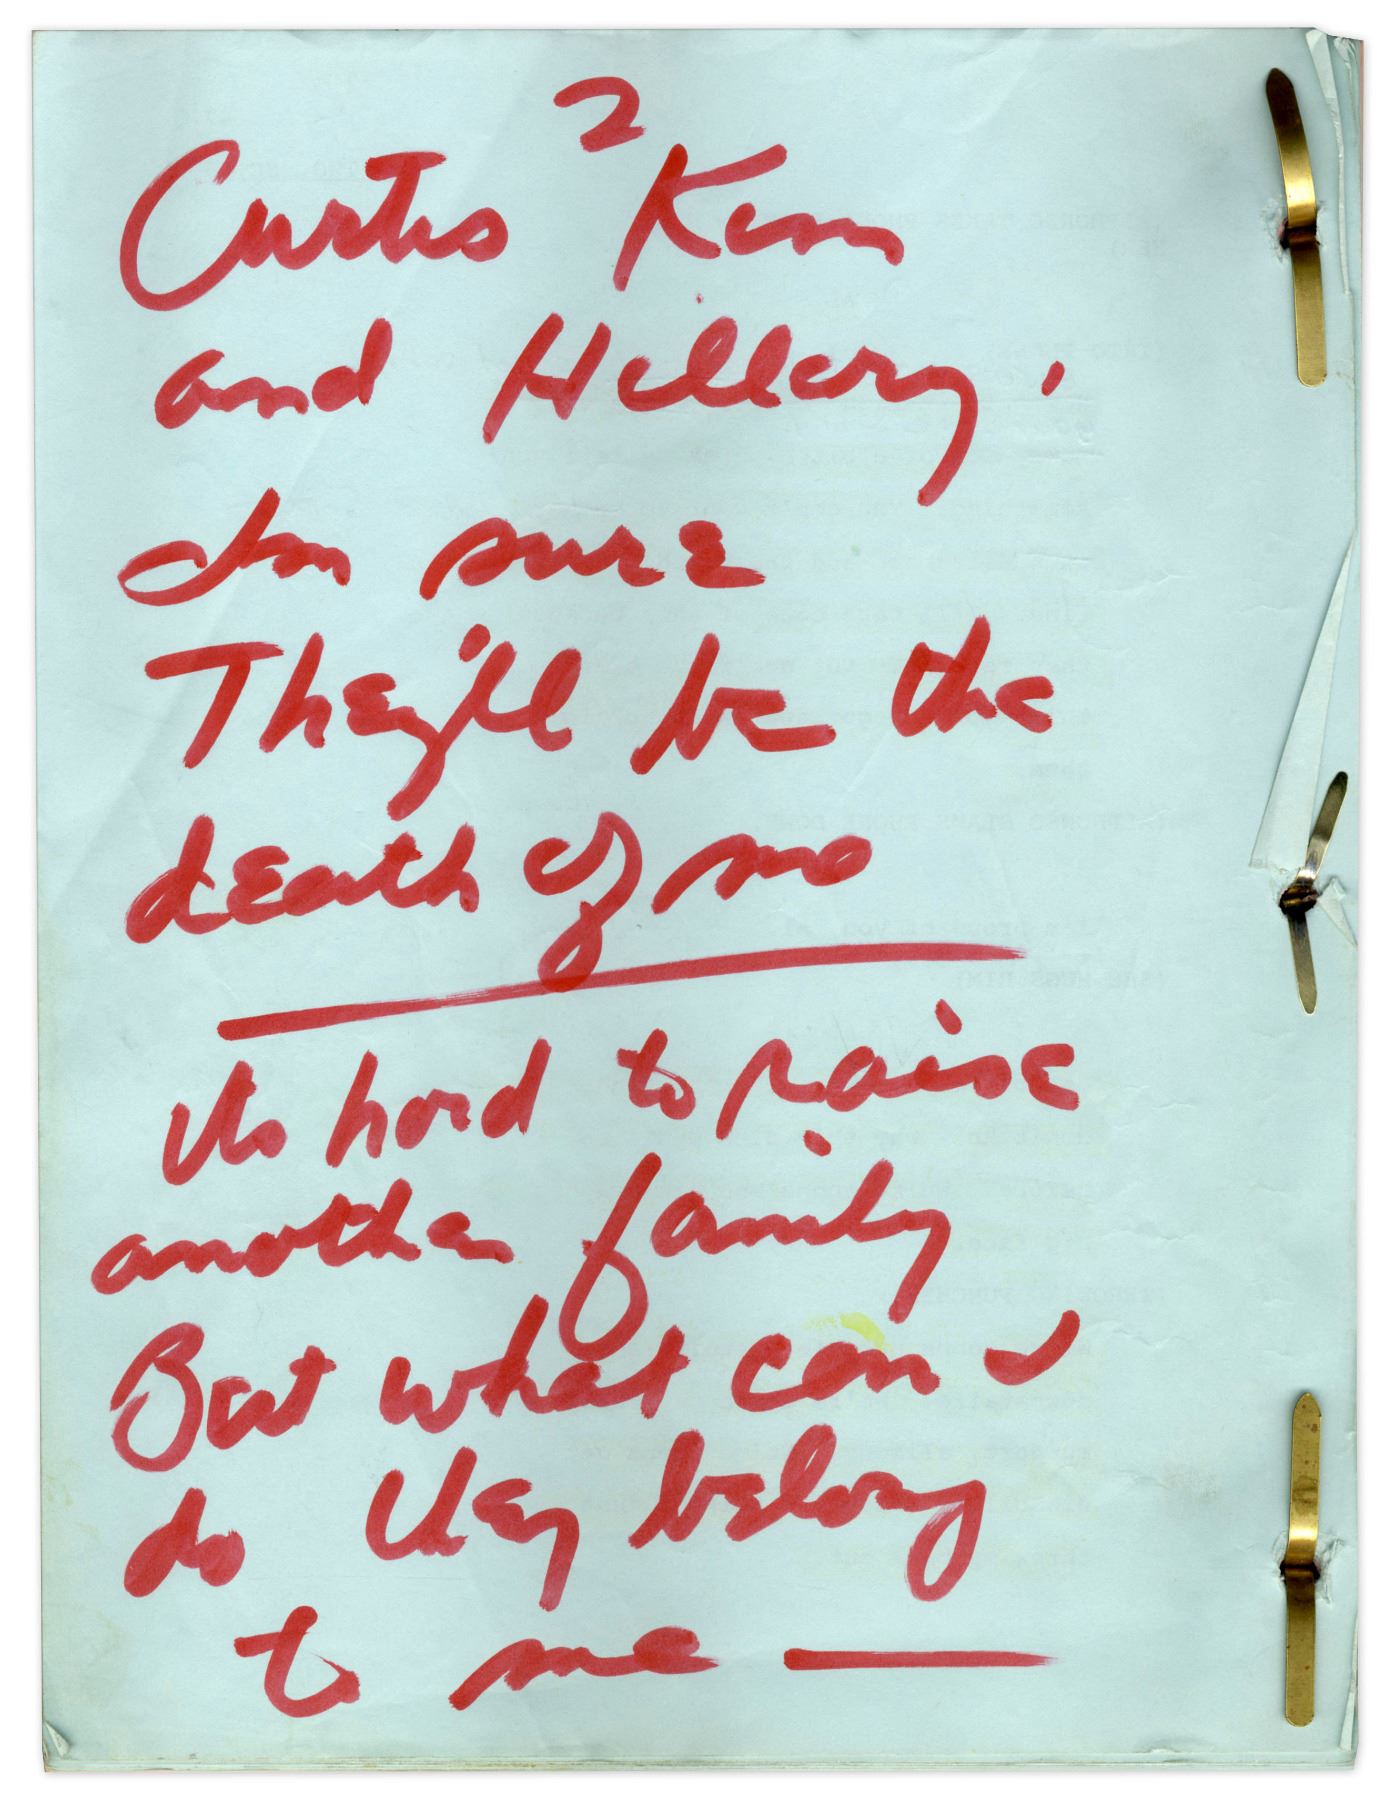 2
Curtis Kim
and Hillary,
Im sure
They'll be the
death of me
Its hard to raise
another family
But what can I
do they belong
to me —